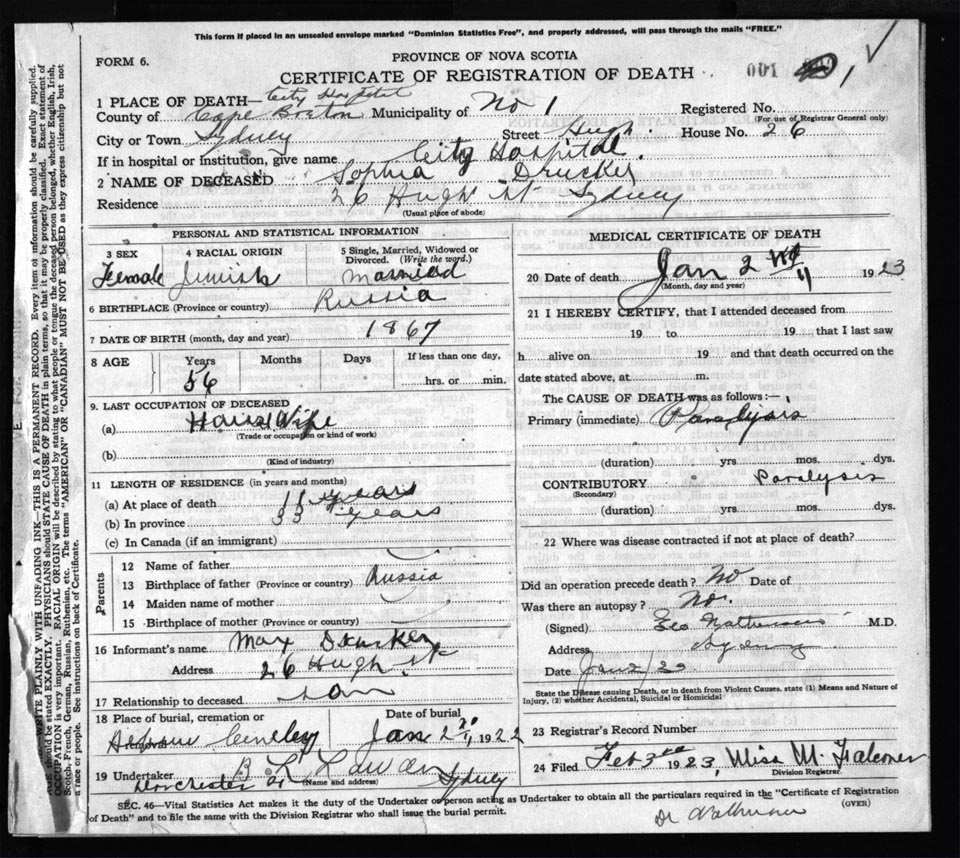 This form if placed in an unsealed envelope marked "Dominion Statistics Free", and properly addressed, will pass through the mails "FREE."
FORM 6.
PROVINCE OF NOVA SCOTIA
CERTIFICATE OF REGISTRATION OF DEATH
001
1 PLACE OF DEATH— City Hospital
County of Cape Breton Municipality of No 1 Registered No.
(For use of Registrar General only)
City or Town Sydney Street Hugh. House No. 26
If in hospital or Institution, give name City Hospital.
2 NAME OF DECEASED Sophia Drucker
Residence 26 Hugh St Sydney
(Usual place of abode)
PERSONAL AND STATISTICAL INFORMATION
3 SEX 4 RACIAL ORIGIN 5 Single, Married, Widowed or Divorced. (Write the word.)
Female Jewish Married
6 BIRTHPLACE (Province or country) Russia
7 DATE OF BIRTH (month, day and year) 1867
8 AGE Years Months Days If less than one day,
56 hrs. or min.
9. LAST OCCUPATION OF DECEASED
(a) House Wife
(Trade or occupation or kind of work)
(b)
(Kind of industry)
11 LENGTH OF RESIDENCE (in years and months)
(a) At place of death years
(b) In province years
(c) In Canada (if an immigrant)
Parents
12 Name of father
13 Birthplace of father (Province or country) Russia
14 Maiden name of mother
15 Birthplace of mother (Province or country)
16 Informant's name Max Drucker
Address 26 Hugh St
17 Relationship to deceased son
18 Place of burial, cremation or removal Date of burial
Jan 2 1922
19 Undertaker
(Name and address)
Dorchester Sydney
MEDICAL CERTIFICATE OF DEATH
20 Date of death Jan 2 1923
(Month, day and year)
21 I HEREBY CERTIFY, that I attended deceased from
19 to 19 that I last saw
h alive on 19 and that death occurred on the
date stated above, at m.
The CAUSE OF DEATH was as follows:—
Primary (immediate) Paralysis
(duration) yrs mos. dys.
CONTRIBUTORY Paralysis
(Secondary)
(duration) yrs. mos. dys.
22 Where was disease contracted if not at place of death?
Did an operation precede death? No Date of
Was there an autopsy? No.
(Signed) M.D.
Address Sydney
Date
State the Disease causing Death, or in death from Violent Causes, state (1) Means and Nature of Injury, (2) whether Accidental, Suicidal or Homicidal
23 Registrar's Record Number
24 Filed Feb 3rd 1923, Miss M. Falconer
Division Registrar.
SEC. 46—Vital Statistics Act makes it the duty of the Undertaker or person acting as Undertaker to obtain all the particulars required in the "Certificate of Registration
of Death" and to file the same with the Division Registrar who shall issue the burial permit.
(OVER)
WRITE PLAINLY WITH UNFADING INK—THIS IS A PERMANENT RECORD. Every item of information should be carefully supplied.
AGE should be stated EXACTLY. PHYSICIANS should STATE CAUSE OF DEATH in plain terms, so that it may be properly classified. Exact statement of
OCCUPATION is very important. RACIAL ORIGIN will be described by stating to what people or tongue the deceased person belonged, whether English, Irish,
Scotch, French, German, Russian, Ruthenian, etc. The terms "AMERICAN" or "CANADIAN" MUST NOT BE USED as they express citizenship but not
a race or people. See instructions on back of Certificate.